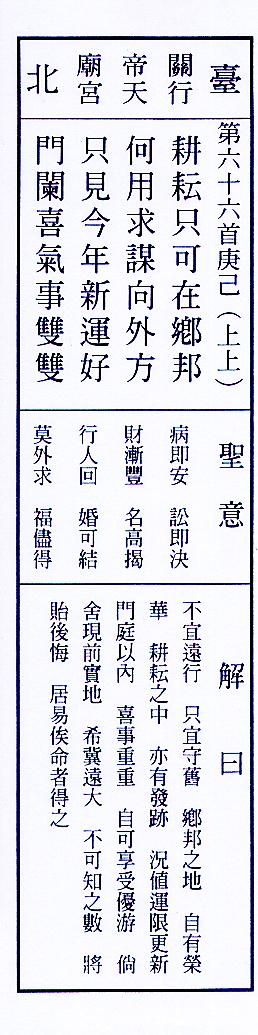 臺
關行
帝天
廟宮
北
第六十六首庚己（上上）
耕耘只可在鄉邦
何用求謀向外方
只見今年新運好
門闌喜氣事雙雙
聖意
病即安 訟即決
財漸豐 名高揭
行人回 婚可結
莫外求 福儘得
解曰
不宜遠行 只宜守舊 鄉邦之地 自有榮
華 耕耘之中 亦有發跡 況値運限更新
門庭以內 喜事重重 自可享受優游 倘
舍現前實地 希冀遠大 不可知之數 將
貽後悔 居易俟命者得之